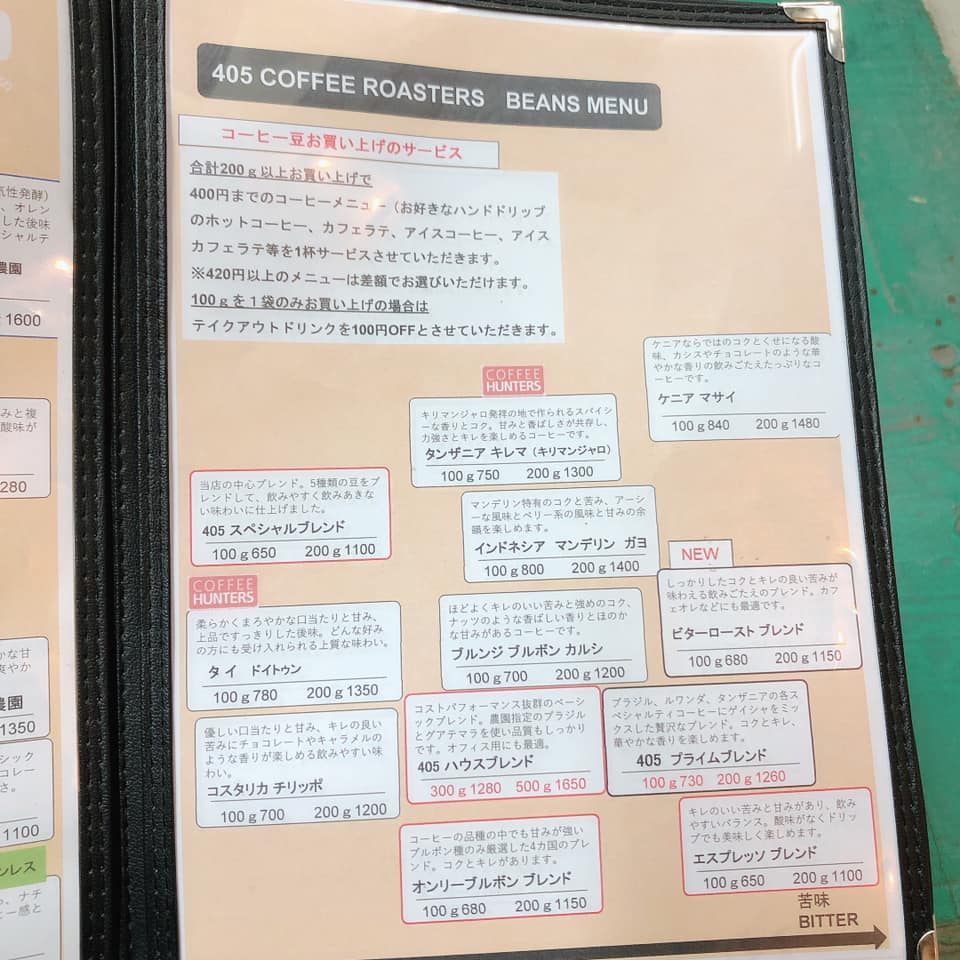 405 COFFEE ROASTERS BEANS MENU
コーヒー豆お買い上げのサービス
合計200g以上お買い上げで
400円までのコーヒーメニュー（お好きなハンドドリップ
のホットコーヒー、カフェラテ、アイスコーヒー、アイス
カフェラテ等を1杯サービスさせていただきます。
※420円以上のメニューは差額でお選びいただけます。
100gを1袋のみお買い上げの場合は
テイクアウトドリンクを100円OFFとさせていただきます。
ケニアならではのコクとくせになる酸
味、カシスやチョコレートのような華
やかな香りの飲みごたえたっぷりなコ
ーヒーです。
ケニア マサイ
100g840 200g1480
COFFEE
HUNTERS
キリマンジャロ発祥の地で作られるスパイシ
ーな香りとコク。甘みと香ばしさが共存し、
力強さとキレを楽しめるコーヒーです。
タンザニア キレマ（キリマンジャロ）
100g750 200g1300
当店の中心ブレンド。5種類の豆をブ
レンドして、飲みやすく飲みあきな
い味わいに仕上げました。
405 スペシャルブレンド
100g650 200g1100
マンデリン特有のコクと苦み、アーシ
ーな風味とベリー系の風味と甘みの余
韻を楽しめます。
インドネシア マンデリン ガヨ
100g800 200g1400
COFFEE
HUNTERS
柔らかくまろやかな口当たりと甘み、
上品ですっきりした後味。どんな好み
の方にも受け入れられる上質な味わい。
タイ ドイトゥン
100g780 200g1350
ほどよくキレのいい苦みと強めのコク、
ナッツのような香ばしい香りとほのか
な甘みがあるコーヒーです。
ブルンジ ブルボン カルシ
100g700 200g1200
NEW
しっかりしたコクとキレの良い苦みが
味わえる飲みごたえのブレンド。カフ
ェオレなどにも最適です。
ビターロースト ブレンド
100g680 200g1150
優しい口当たりと甘み、キレの良い
苦みにチョコレートやキャラメルの
ような香りが楽しめる飲みやすい味
わい。
コスタリカ チリッポ
100g700 200g1200
コストパフォーマンス抜群のベーシ
ックブレンド。農園指定のブラジル
とグアテマラを使い品質もしっかり
です。オフィス用にも最適。
405 ハウスブレンド
300g1280 500g1650
ブラジル、ルワンダ、タンザニアの各ス
ペシャルティコーヒーにゲイシャをミッ
クスした贅沢なブレンド。コクとキレ、
華やかな香りを楽しめます。
405 プライムブレンド
100g730 200g1260
コーヒーの品種の中でも甘みが強い
ブルボン種のみ厳選した4カ国のブレ
ンド。コクとキレがあります。
オンリーブルボン ブレンド
100g680 200g1150
キレのいい苦みと甘みがあり、飲み
やすいバランス。酸味がなくドリッ
プでも美味しく楽しめます。
エスプレッソ ブレンド
100g650 200g1100
苦味
BITTER
気性発酵)
、オレン
した後味
シャルテ
農園
1600
みと複
酸味が
280
かな甘
爽やか
農園
1350
シック
コレー
さ。
1100
ンレス
、ナチ
ー感と